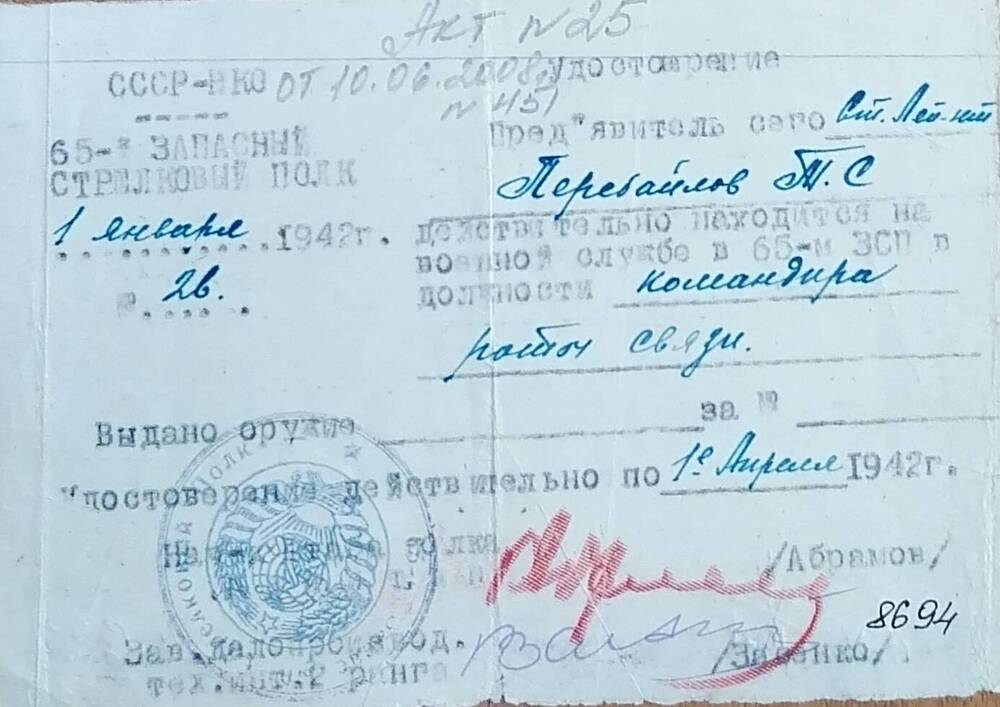 Акт №25
от 10.06.2008г.
№451
СССР-НКО
65-й ЗАПАСНЫЙ
СТРЕЛКОВЫЙ ПОЛК
1 января 1942г.
№ 26.
Удостоверение
Пред"явитель сего Ст. Лей-нт
Перебайлов Т.С
действительно находится на
военной службе в 65-м ЗСП в
должности командира
роты связи.
Выдано оружие за №
Удостоверение действительно по 1е Апреля 1942г.
штаба полка
/Абрамов/
8694
Зав.делопроизвод.
тех.инт.2 ранга